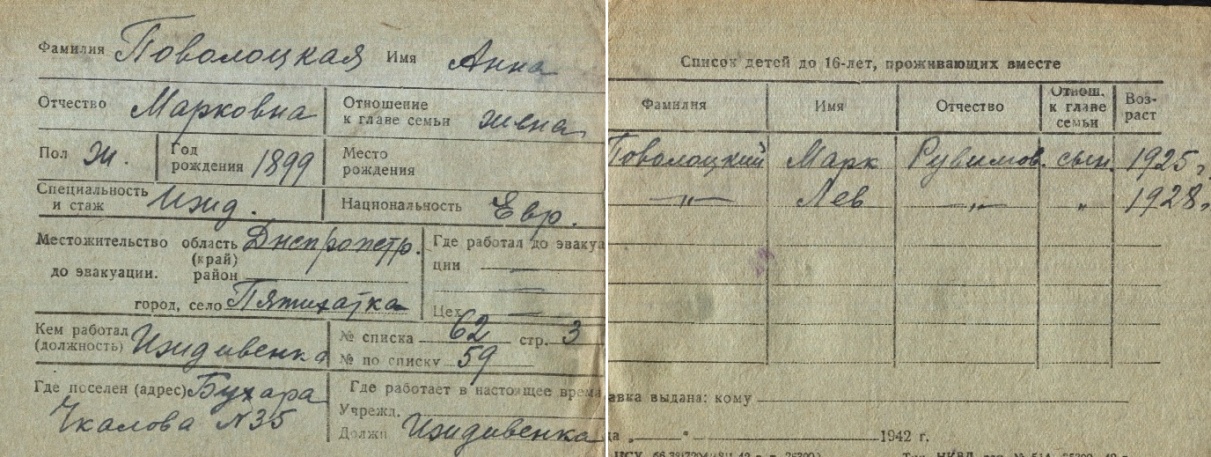 Фамилия Поволоцкая Имя Анна
Отчество Марковна Отношение к главе семьи жена
Пол Ж. Год рождения 1899 Место рождения
Специальность и стаж Ижд. Национальность Евр.
Местожительство до эвакуации. область (край) Днепропетр.
район
город, село Пятихатка
Где работал до эвакуа
ции
Цех
Кем работал (должность) Иждивенка
№ списка 62 стр. 3
№ по списку 59
Где поселен (адрес) Бухара
Чкалова №35
Где работает в настоящее врем
Учрежд.
Должн Иждивенка
Список детей до 16-лет, проживающих вместе
Фамилия Имя Отчество Отнош. к главе семьи Возраст
Поволоцкий Марк Рувимов. сын. 1925 г.
—„— Лев —„— „ 1928
авка выдана: кому
„ “ 1942 г.